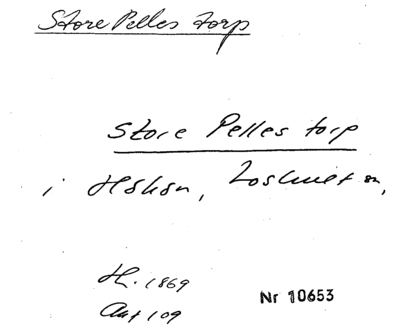 Store Pelles torp
Store Pelles torp
i Håkan, Loshult sn,
H. 1869
Ant 109
Nr 10653